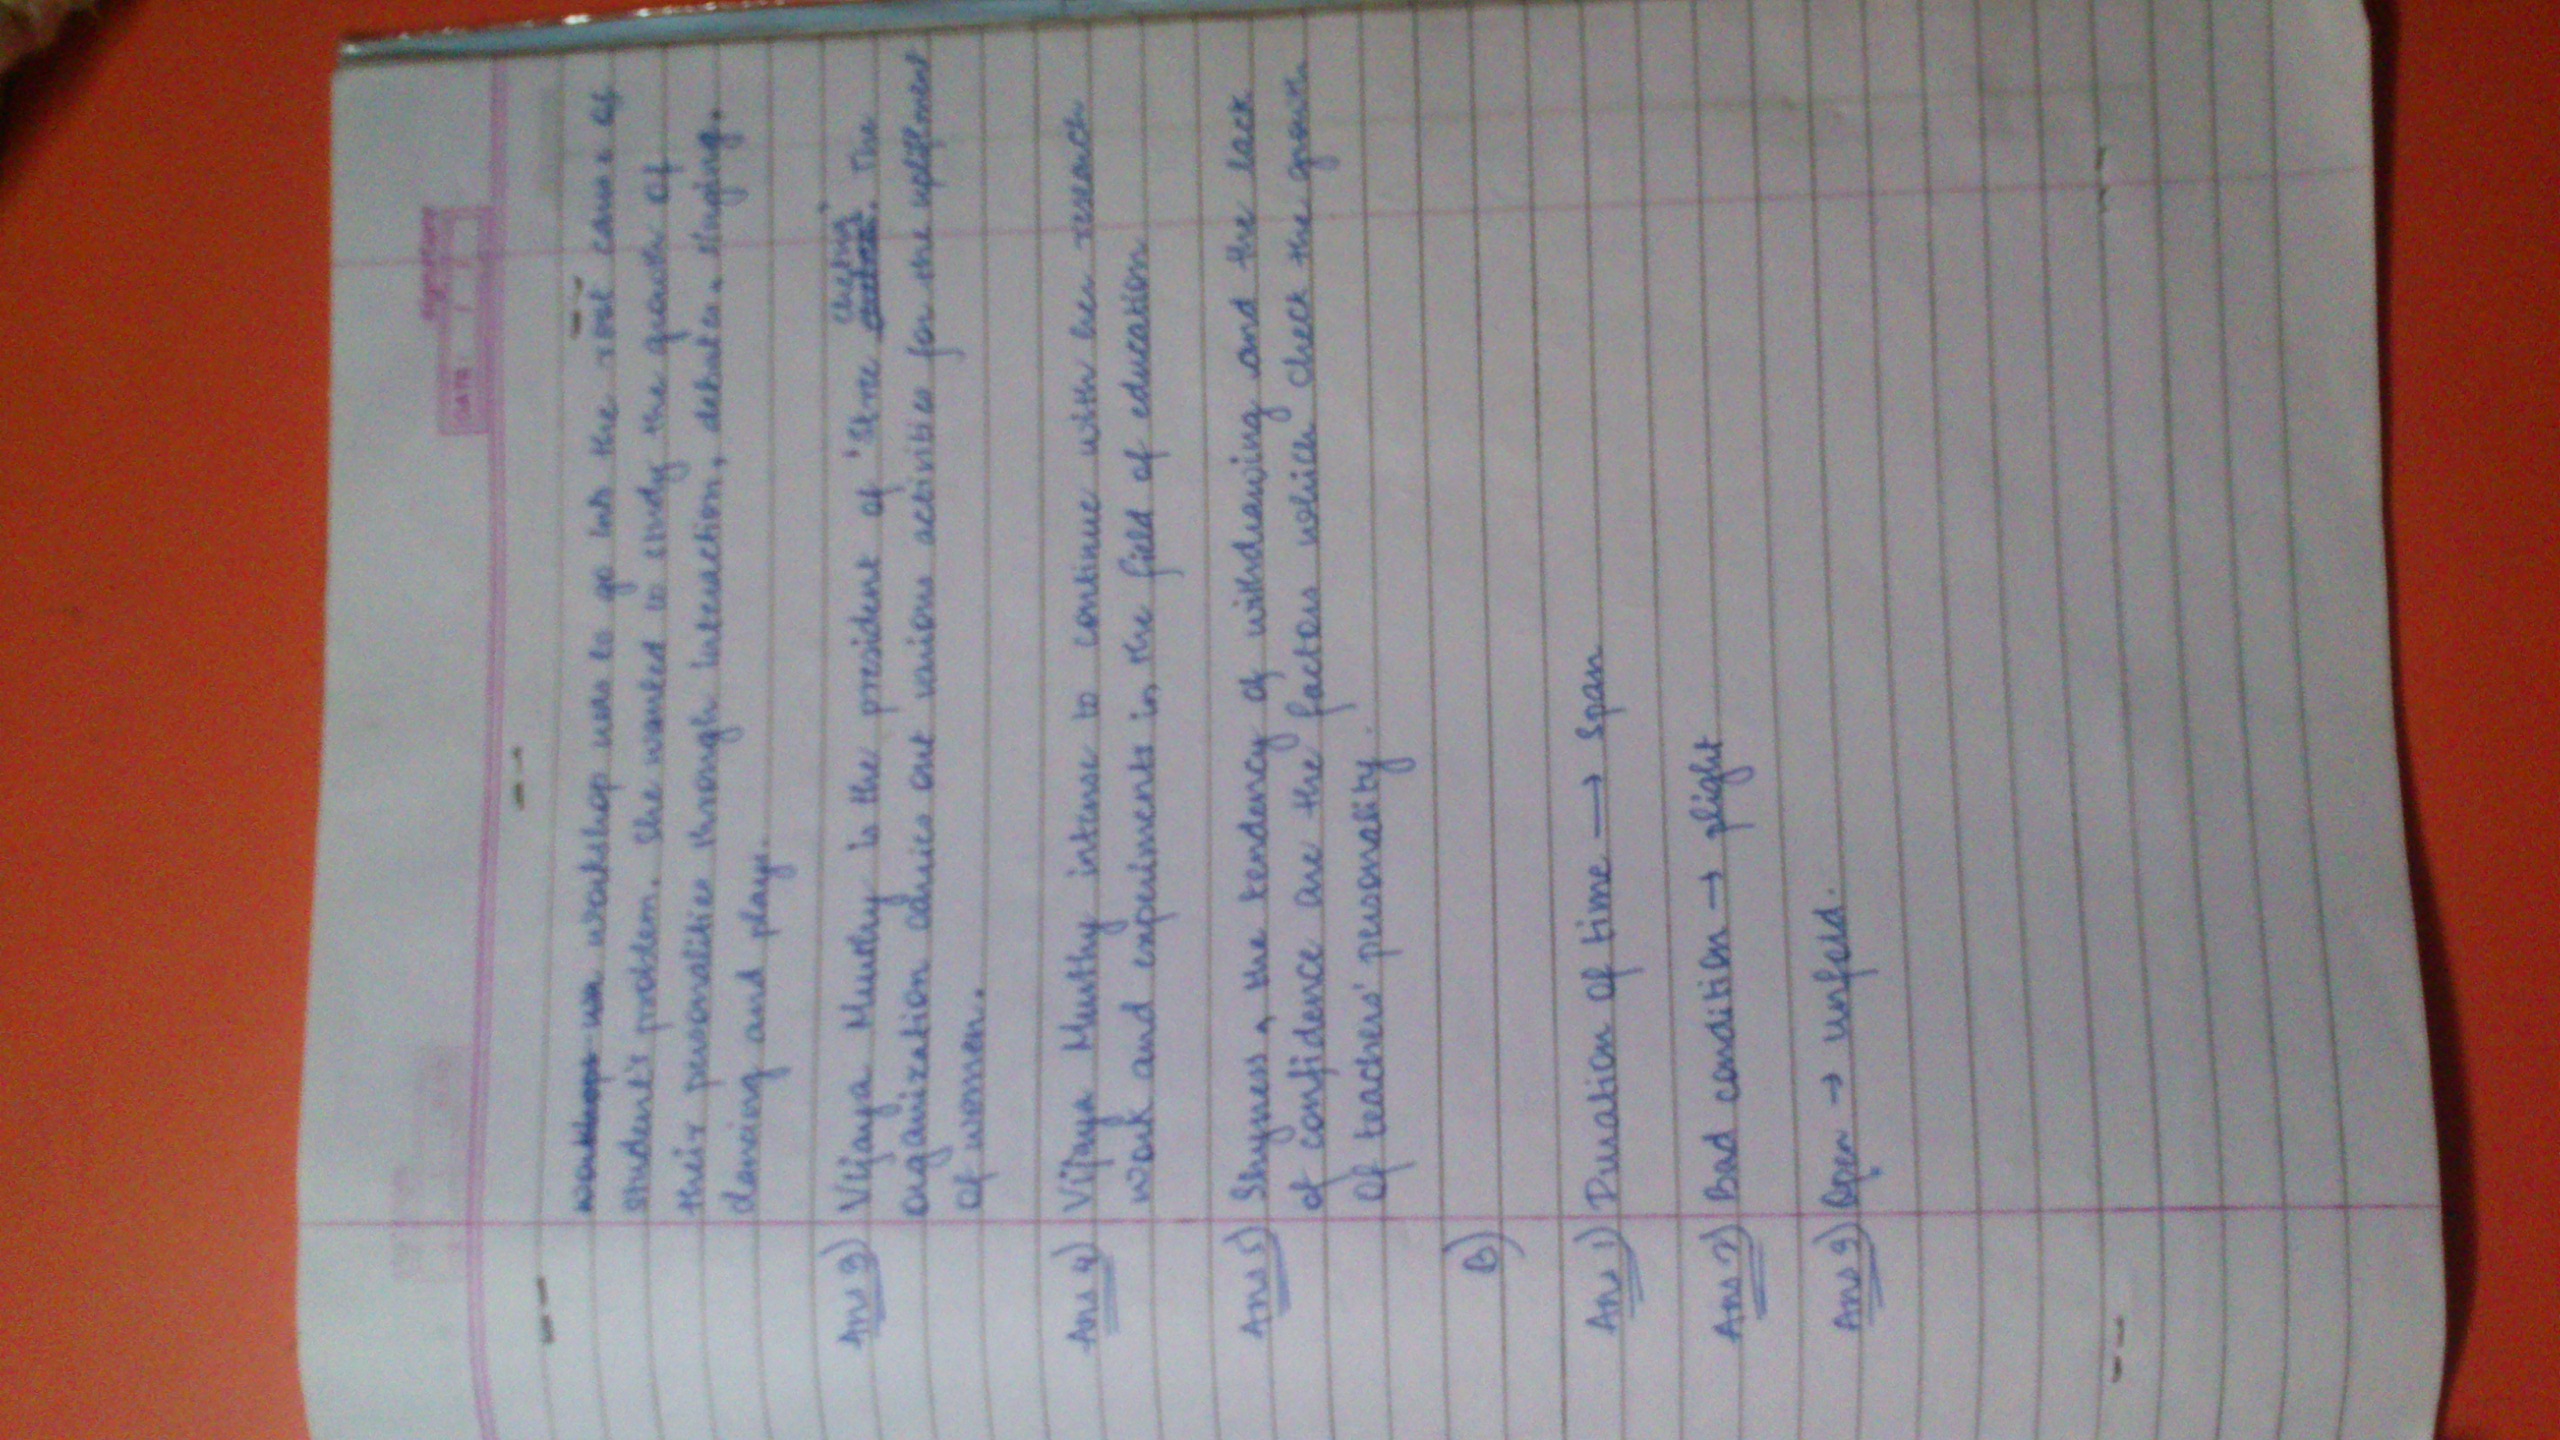 Signature
DATE: / /
workshop was workshop was to go into the root causes of
student's problem. She wanted to study the growth of
their personalities through interaction, debates, singing,
dancing and plays.
Ans 3) Vijaya Murthy is the president of 'Stree . The
organization carries out various activities for the upliftment
of women.
Ans 4) Vijaya Murthy intense to continue with her research
work and experiments in the field of education
Ans 5) Shyness, the tendency of withdrawing and the lack
of confidence are the factors which check the growth
of teachers' personality.
B)
Ans 1) Duration of time → span
Ans 2) Bad condition → plight
Ans 3) Open → unfold.